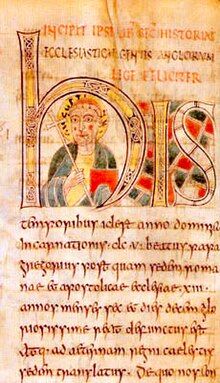 INCIPIT HISTORIAE
ECCLESIASTICAE GENTIS ANGLORUM
LEGE FELICITER
his
AGUSTINUS
temporibus id est anno dominicae
Incarnationis dc v beatus papa
gregorius post quam sedem roma
nae et apostolicae ecclesiae xiii
annos menses sex et dies decem glo
riosissime rexit defunctus est
Atque ad aeternam regni caelestis
sedem translatus. De quo nos